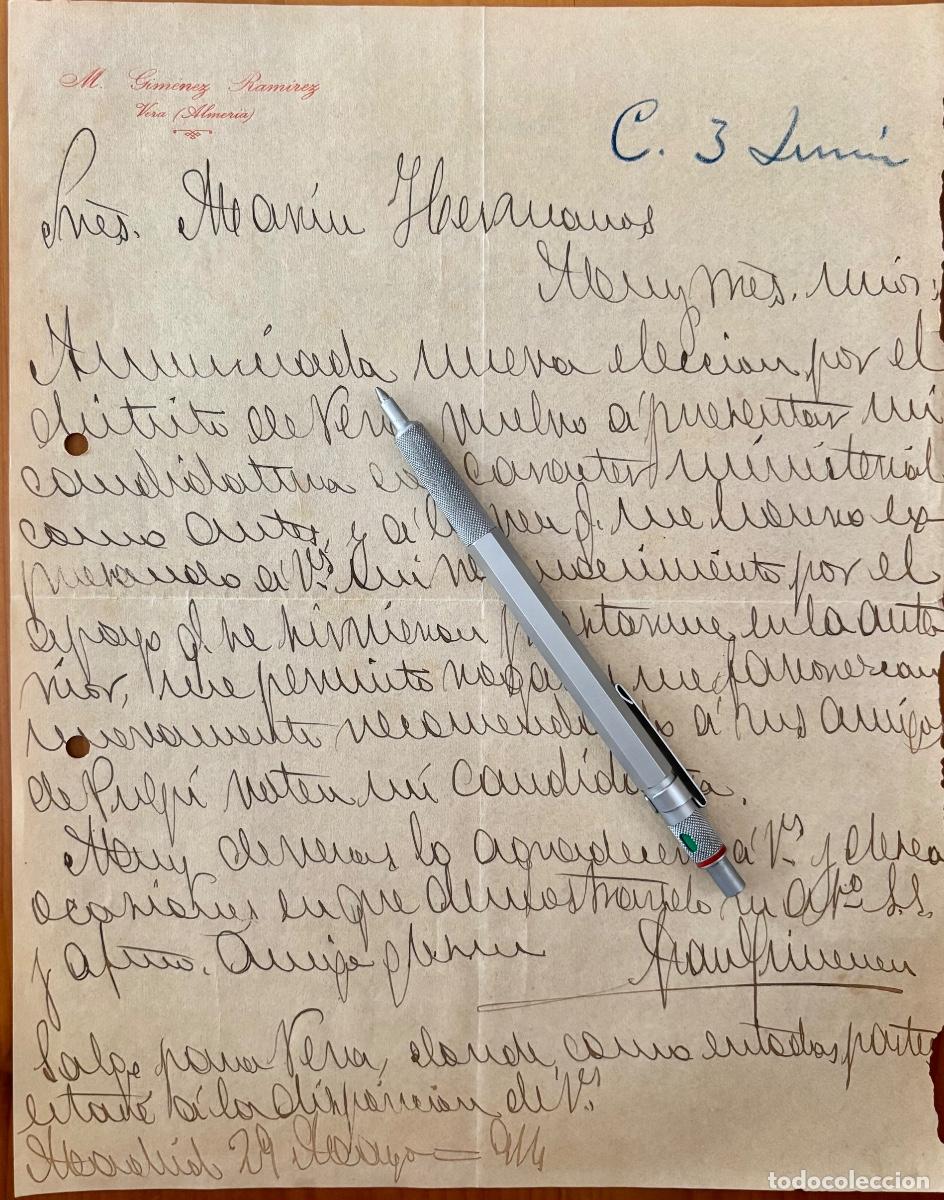 M. Giménez Ramirez
Vera (Almería)
C. 3 Junio
Sres. Marín Hermanos
Muy Sres. mios:
Anunciada nueva eleccion por el
distrito de Vera vuelvo á presentar mi
candidatura en caracter ministerial
como antes, y á la vez q. me honro ex
presando á Vs. mi reconocimiento por el
apoyo q. se sirvieron prestarme en la ante
rior, me permito me favorezcan
nuevamente recomendando á sus amigos
de Pulpí voten mi candidatura.
Muy deveras lo agradeceré á Vs. y desea
ocasiones en que demostrarselo su S.S.
y afmo. amigo
Juan Gimenez
Salgo para Vera, donde, como en todas partes
estaré á la disposicion de Vs.
Madrid 29 Mayo = 914
todocoleccion